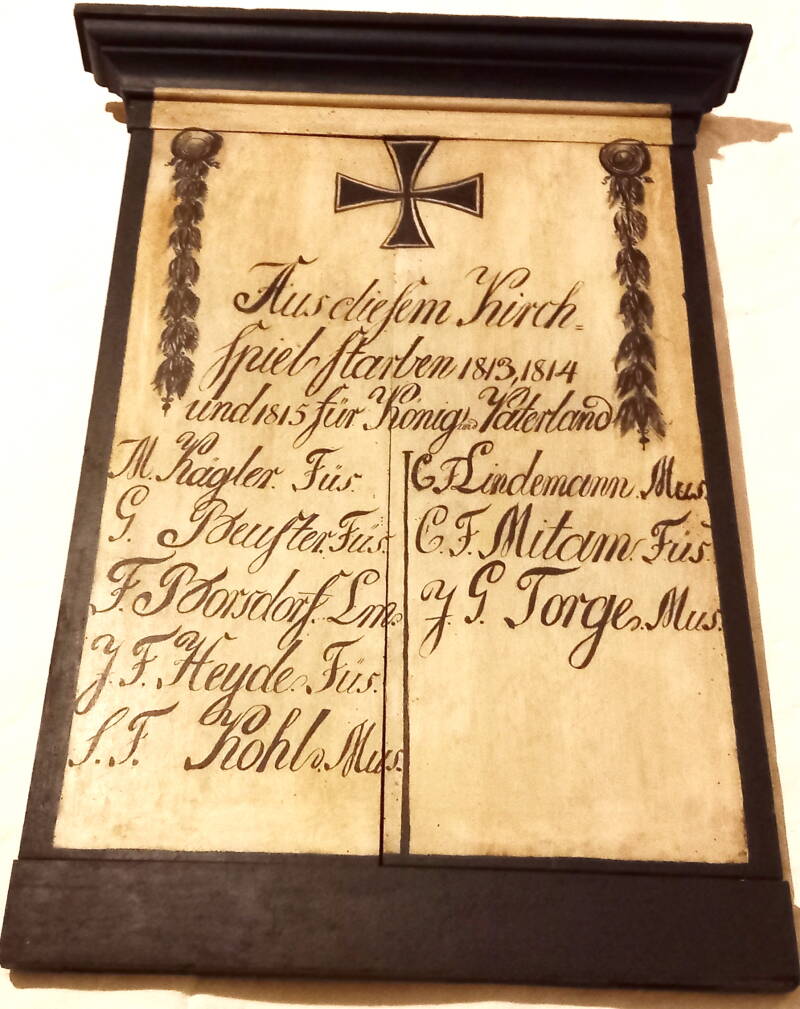 Aus dieſem Kirch=
ſpiel ſtarben 1813, 1814
und 1815 für König und Vaterland
M. Kägler. Füs.
G. Beuſter. Füs.
F. Borsdorf. Lm.
J. F. Heyde. Füs.
S. F. Kohl. Mus.
C. F. Lindemann. Mus.
C. F. Mitam. Füs.
J. G. Torge. Mus.